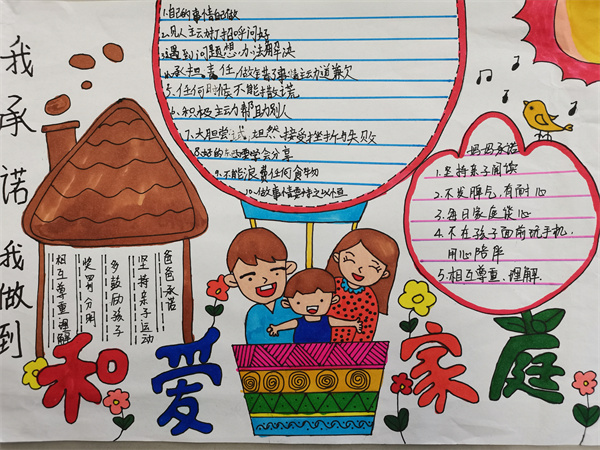 我承诺我做到
1.自己的事情自己做
2.见人主动打招呼问好
3.遇到问题想办法解决
4.承担责任做错了事主动道歉
5.任何时候不能撒谎
6.积极主动帮助别人
7.大胆尝试,坦然接受挫折与失败
8.好的东西要学会分享
9.不能浪费任何食物
10.做事情要持之以恒
妈妈承诺
1.坚持亲子阅读
2.不发脾气,有耐心
3.每日家庭谈心
4.不在孩子面前玩手机,
用心陪伴
5.相互尊重.理解
爸爸承诺
坚持亲子运动
多鼓励孩子
奖罚分明
相互尊重理解
和爱家庭